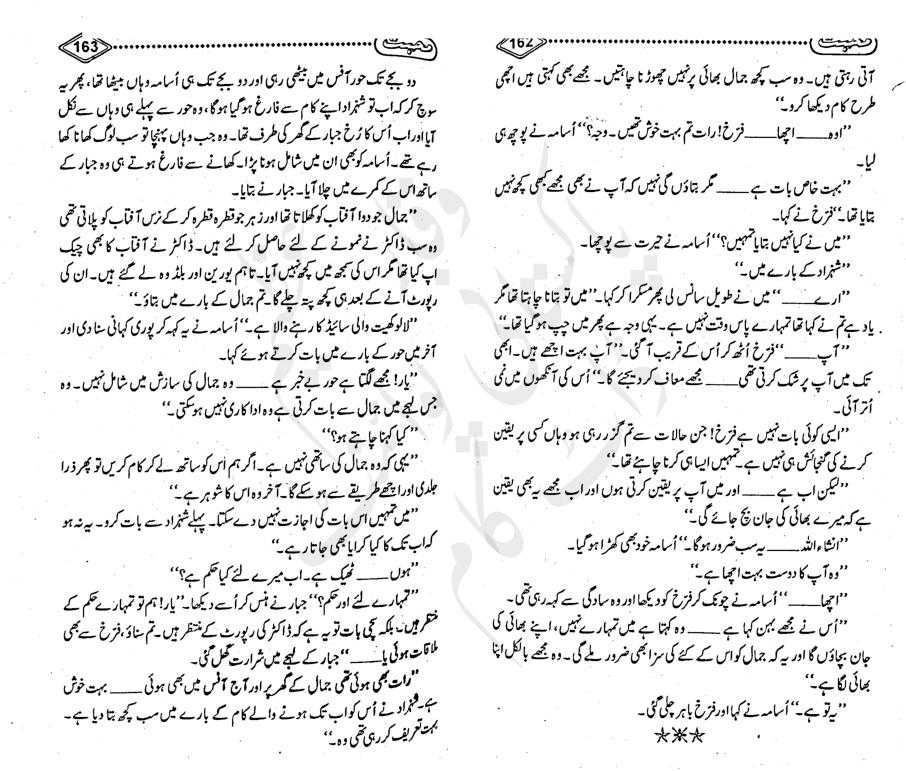 162
آتی رہتی ہیں۔ وہ سب کچھ جمال بھائی پر نہیں چھوڑنا چاہتیں۔ مجھے بھی کہتی ہیں اچھی
طرح کام دیکھا کرو۔‘‘
’’اوہ____ اچھا____ فرخ! رات تم بہت خوش تھیں۔ وجہ؟‘‘ اُسامہ نے پوچھ ہی
لیا۔
’’بہت خاص بات ہے____ مگر بتاؤں گی نہیں کہ آپ نے بھی مجھے کبھی کچھ نہیں
بتایا تھا۔‘‘ فرخ نے کہا۔
’’میں نے کیا نہیں بتایا تمہیں؟‘‘ اُسامہ نے حیرت سے پوچھا۔
’’شہزاد کے بارے میں۔‘‘
’’ارے____‘‘ میں نے طویل سانس لی پھر مسکرا کر کہا۔ ’’میں تو بتانا چاہتا تھا مگر
یاد ہے تم نے کہا تھا تمہارے پاس وقت نہیں ہے۔ یہی وجہ ہے پھر میں چپ ہو گیا تھا۔‘‘
’’آپ____‘‘ فرخ اُٹھ کر اُس کے قریب آ گئی۔ ’’آپ بہت اچھے ہیں۔ ابھی
تک میں آپ پر شک کرتی تھی____ مجھے معاف کر دیجئے گا۔‘‘ اُس کی آنکھوں میں نمی
اُتر آئی۔
’’ایسی کوئی بات نہیں ہے فرخ! جن حالات سے تم گزر رہی ہو وہاں کسی پر یقین
کرنے کی گنجائش ہی نہیں ہے۔ تمہیں ایسا ہی کرنا چاہئے تھا۔‘‘
’’لیکن اب ہے____ اور میں آپ پر یقین کرتی ہوں اور اب مجھے یہ بھی یقین
ہے کہ میرے بھائی کی جان بچ جائے گی۔‘‘
’’انشاء اللہ____ یہ سب ضرور ہو گا۔‘‘ اُسامہ خود بھی کھڑا ہو گیا۔
’’وہ آپ کا دوست بہت اچھا ہے۔‘‘
’’اچھا____‘‘ اُسامہ نے چونک کر فرخ کو دیکھا اور وہ سادگی سے کہہ رہی تھی۔
’’اُس نے مجھے بہن کہا ہے____ وہ کہتا ہے میں تمہارے نہیں، اپنے بھائی کی
جان بچاؤں گا اور یہ کہ جمال کو اس کے کئے کی سزا بھی ضرور ملے گی۔ وہ مجھے بالکل اپنا
بھائی لگا ہے۔‘‘
’’یہ تو ہے۔‘‘ اُسامہ نے کہا اور فرخ باہر چلی گئی۔
☆☀☆
163
دو بجے تک حور آفس میں بیٹھی رہی اور دو بجے تک ہی اُسامہ وہاں بیٹھا تھا، پھر یہ
سوچ کر کہ اب تو شہزاد اپنے کام سے فارغ ہو گیا ہو گا، وہ حور سے پہلے ہی وہاں سے نکل
آیا اور اب اُس کا رُخ جبار کے گھر کی طرف تھا۔ وہ جب وہاں پہنچا تو سب لوگ کھانا کھا
رہے تھے۔ اُسامہ کو بھی ان میں شامل ہونا پڑا۔ کھانے سے فارغ ہوتے ہی وہ جبار کے
ساتھ اس کے کمرے میں چلا آیا۔ جبار نے بتایا۔
’’جمال جو دوا آفتاب کو کھلاتا تھا اور زہر جو قطرہ قطرہ کر کے نرس آفتاب کو پلاتی تھی
وہ سب ڈاکٹر نے نمونے کے لئے حاصل کر لئے ہیں۔ ڈاکٹر نے آفتاب کا بھی چیک
اپ کیا تھا مگر اس کی سمجھ میں کچھ نہیں آیا۔ تاہم یورین اور بلڈ وہ لے گئے ہیں۔ ان کی
رپورٹ آنے کے بعد ہی کچھ پتہ چلے گا۔ تم جمال کے بارے میں بتاؤ۔‘‘
’’لالوکھیت والی سائیڈ کا رہنے والا ہے۔‘‘ اُسامہ نے یہ کہہ کر پوری کہانی سنا دی اور
آخر میں حور کے بارے میں بات کرتے ہوئے کہا۔
’’یار! مجھے لگتا ہے حور بے خبر ہے____ وہ جمال کی سازش میں شامل نہیں۔ وہ
جس لہجے میں جمال سے بات کرتی ہے وہ اداکاری نہیں ہو سکتی۔‘‘
’’کیا کہنا چاہتے ہو؟‘‘
’’یہی کہ وہ جمال کی ساتھی نہیں ہے۔ اگر ہم اس کو ساتھ لے کر کام کریں تو پھر ذرا
جلدی اور اچھے طریقے سے ہو سکے گا۔ آخر وہ اس کا شوہر ہے۔‘‘
’’میں تمہیں اس بات کی اجازت نہیں دے سکتا۔ پہلے شہزاد سے بات کرو۔ یہ نہ ہو
کہ اب تک کا کیا کرایا بھی جاتا رہے۔‘‘
’’ہوں____ ٹھیک ہے۔ اب میرے لئے کیا حکم ہے؟‘‘
’’تمہارے لئے اور حکم؟‘‘ جبار نے ہنس کر اُسے دیکھا۔ ’’یار! ہم تو تمہارے حکم کے
منتظر ہیں۔ بلکہ سچی بات تو یہ ہے کہ ڈاکٹر کی رپورٹ کے منتظر ہیں۔ تم سناؤ، فرخ سے بھی
ملاقات ہوئی یا____‘‘ جبار کے لہجے میں شرارت گھل گئی۔
’’رات بھی ہوئی تھی جمال کے گھر پر اور آج آفس میں بھی ہوئی____ بہت خوش
ہے۔ شہزاد نے اُس کو اب تک ہونے والے کام کے بارے میں سب کچھ بتا دیا ہے۔
بہت تعریف کر رہی تھی وہ۔‘‘